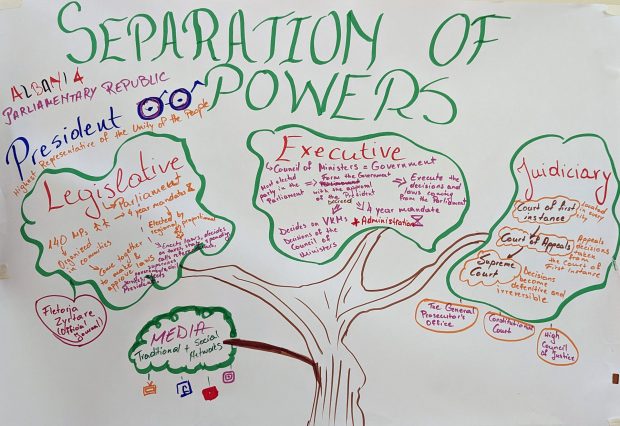 SEPARATION OF
POWERS
ALBANIA
PARLIAMENTARY REPUBLIC
President
Highest Representative of the Unity of the People
Legislative
Parliament
4 year mandate
140 MPs
Organized
in committees
Elected by
regional proportional
Come together
to make &
approve laws
Enacts laws, decides
Fletorja
Zyrtare
(Official
Journal)
MEDIA
Traditional + Social
Networks
Executive
Council of Ministers = Government
Most elected
party in the
Parliament
Form the Government
with the approval
of the President
Decreed
Execute the
decisions and
laws
from the Parliament
4 year mandate
Administration
Decides on VKMs
Decisions of the
Council of
Ministers
Juidiciary
Court of first
instance
Located
every
city
Court of Appeals
Appeals
decisions
taken
from
the Court of
First Instance
Supreme
Court
Decisions
become
definitive and
irreversible
The General
Prosecutor's
Office
Constitutional
Court
High
Council of
Justice